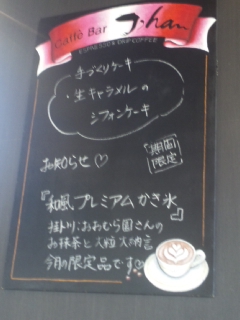 Caffé Bar J-han
ESPRESSO & DRIP COFFEE
手づくりケーキ
・生キャラメルの
シフォンケーキ
お知らせ♡
期間
限定
『和風プレミアムかき氷』
掛川:おおむら園さんの
お抹茶と大粒大納言
今月の限定品です♡